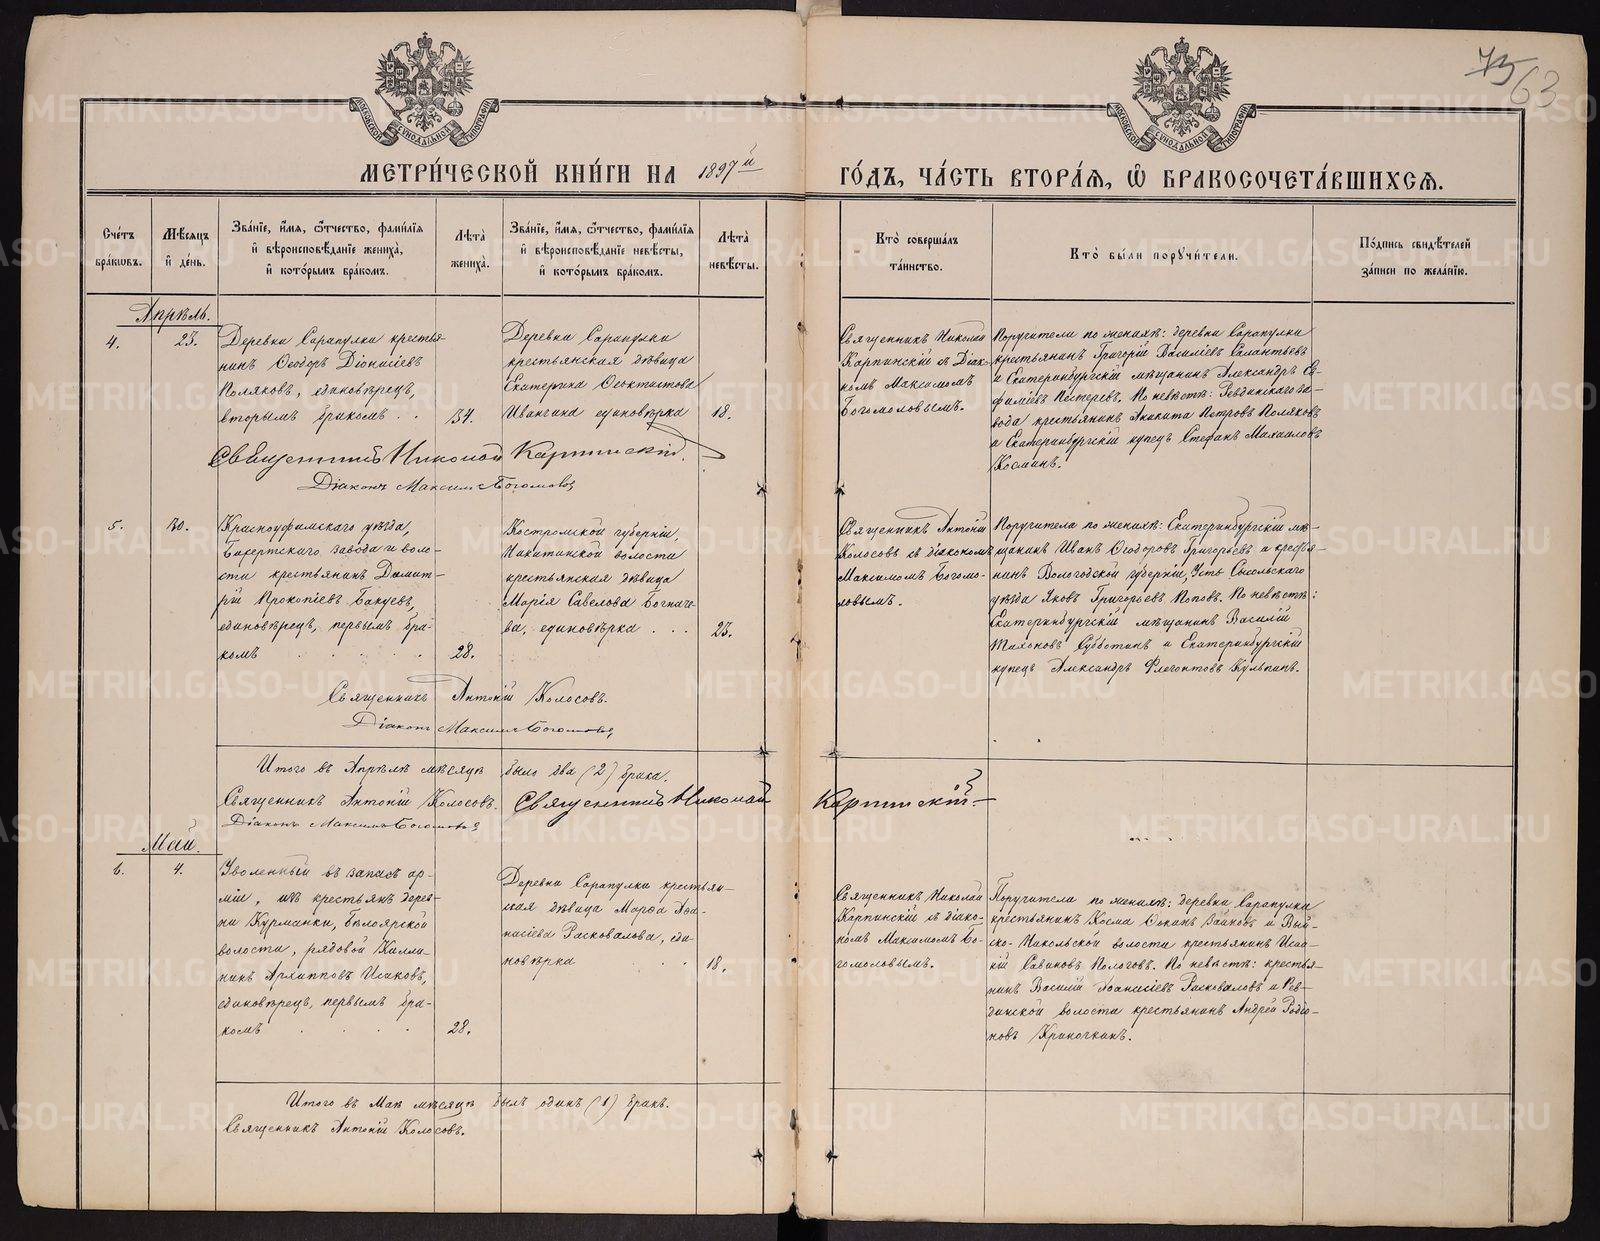 73 63
МОСКОВСКОЙ СѴНОДАЛЬНОЙ ТИПОГРАФІИ
МОСКОВСКОЙ СѴНОДАЛЬНОЙ ТИПОГРАФІИ
МЕТРИ́ЧЕСКОЙ КНИ́ГИ НА 1897й ГО́ДЪ, ЧА́СТЬ ВТОРА́Я, Ѡ БРАКОСОЧЕТА́ВШИХСЯ.
Сче́тъ бра́кѡвъ.
Мѣ́сяцъ и де́нь.
Зва́нїе, и́мя, ѻ́тчество, фами́лїя и вѣроисповѣ́данїе жениха̀, и кото́рымъ бра́комъ.
Лѣ́та жениха̀.
Зва́нїе, и́мя, ѻ́тчество, фами́лїя и вѣроисповѣ́данїе невѣ́сты, и кото́рымъ бра́комъ.
Лѣ́та невѣ́сты.
Кто̀ соверша́лъ та́инство.
Кто̀ бы́ли поручи́тели.
По́дпись свидѣ́телей за́писи по жела́нїю.
Апрѣль.
4.
23.
Деревни Сарапулки крестья-
нинъ Ѳеодоръ Діонисіевъ
Поляковъ, единовѣрецъ,
вторымъ бракомъ . .
34.
Деревни Сарапулки
крестьянская дѣвица
Екатерина Ѳеоктистова
Иванчина единовѣрка
18.
Священникъ Николай
Карпинскій съ Діако-
номъ Максимомъ
Богомоловымъ.
Поручители по женихѣ: деревни Сарапулки
крестьянинъ Григорій Василіевъ Салантьевъ
и Екатеринбургскій мѣщанинъ Александръ Еѳ-
фиміевъ Пестеревъ. По невѣстѣ: Ревдинскаго за-
вода крестьянинъ Аникита Петровъ Поляковъ
и Екатеринбургскій купецъ Стефанъ Михаиловъ
Косминъ.
Священникъ Николай Карпинскій.
Діаконъ Максимъ Богомоловъ
5.
30.
Красноуфимскаго уѣзда,
Бисертскаго завода и воло-
сти крестьянинъ Димит-
рій Прокопіевъ Бакуевъ,
единовѣрецъ, первымъ бра-
комъ . . . . .
28.
Костромской губерніи,
Никитинской волости
крестьянская дѣвица
Марія Савелова Богаче-
ва, единовѣрка . . .
23.
Священникъ Антоній
Колосовъ съ діакономъ
Максимомъ Богомо-
ловымъ.
Поручители по женихѣ: Екатеринбургскій мѣ-
щанинъ Иванъ Ѳеодоровъ Григорьевъ и крестья-
нинъ Вологодской губерніи, Усть Сысольскаго
уѣзда Яковъ Григорьевъ Поповъ. По невѣстѣ:
Екатеринбургскій мѣщанинъ Василій
Тихоновъ Субботинъ и Екатеринбургскій
купецъ Александръ Флегонтовъ Кульпинъ.
Священникъ Антоній Колосовъ.
Діаконъ Максимъ Богомоловъ
Итого въ Апрѣлѣ мѣсяцѣ было два (2) брака.
Священникъ Антоній Колосовъ. Священникъ Николай Карпинскій
Діаконъ Максимъ Богомоловъ
Май.
6.
4.
Уволенный въ запасъ ар-
міи, изъ крестьянъ дерев-
ни Курманки, Бѣлоярской
волости, рядовой Калли-
никъ Архипповъ Исаковъ,
единовѣрецъ, первымъ бра-
комъ . . . .
28.
Деревни Сарапулки крестьян-
ская дѣвица Марѳа Аѳа-
насіева Расковалова, еди-
новѣрка . .
18.
Священникъ Николай
Карпинскій съ діако-
номъ Максимомъ Бо-
гомоловымъ.
Поручители по женихѣ: деревни Сарапулки
крестьянинъ Косма Зайковъ и Вый-
ско-Никольской волости крестьянинъ Исаа-
кій Савиновъ Пологовъ. По невѣстѣ: крестья-
нинъ Василій Аѳанасіевъ Расковаловъ и Рев-
динской волости крестьянинъ Андрей Родіо-
новъ Криночкинъ.
Итого въ Маѣ мѣсяцѣ былъ одинъ (1) бракъ.
Священникъ Антоній Колосовъ.
METRIKI.GASO-URAL.RU